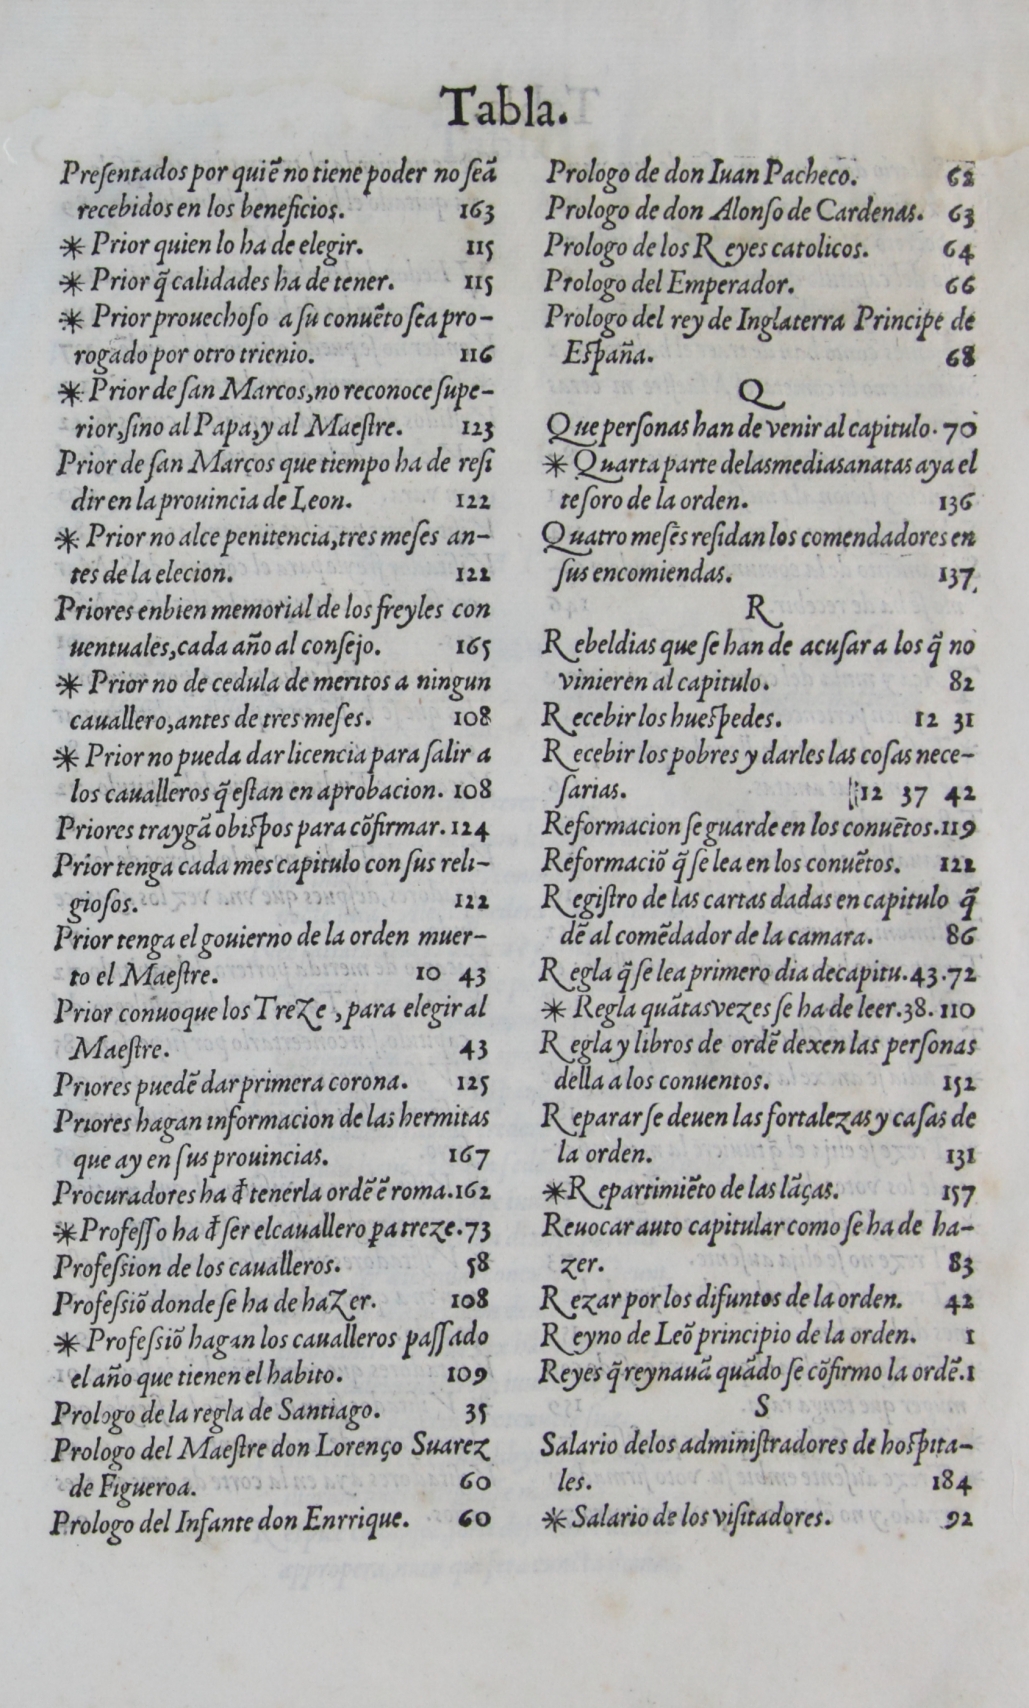 Tabla.
Preſentados por quiẽ no tiene poder no ſeã
recebidos en los beneficios. 163
✴ Prior quien lo ha de elegir. 115
✴ Prior q̃ calidades ha de tener. 115
✴ Prior prouechoſo a ſu conuẽto ſea pro-
rogado por otro trienio. 116
✴ Prior de ſan Marcos, no reconoce ſupe-
rior, ſino al Papa, y al Maeſtre. 123
Prior de ſan Marcos que tiempo ha de reſi
dir en la prouincia de Leon. 122
✴ Prior no alce penitencia, tres meſes an-
tes de la elecion. 122
Priores enbien memorial de los freyles con
uentuales, cada año al conſejo. 165
✴ Prior no de cedula de meritos a ningun
cauallero, antes de tres meſes. 108
✴ Prior no pueda dar licencia para ſalir a
los caualleros q̃ eſtan en aprobacion. 108
Priores traygã obiſpos para cõfirmar. 124
Prior tenga cada mes capitulo con ſus reli-
gioſos. 122
Prior tenga el gouierno de la orden muer-
to el Maeſtre. 10 43
Prior conuoque los Treze, para elegir al
Maeſtre. 43
Priores puedẽ dar primera corona. 125
Priores hagan informacion de las hermitas
que ay en ſus prouincias. 167
Procuradores ha đ tener la ordẽ ẽ roma. 162
✴ Profeſſo ha đ ſer el cauallero ꝑa treze. 73
Profeſsion de los caualleros. 58
Profeſsiõ donde ſe ha de hazer. 108
✴ Profeſsiõ hagan los caualleros paſſado
el año que tienen el habito. 109
Prologo de la regla de Santiago. 35
Prologo del Maeſtre don Lorenço Suarez
de Figueroa. 60
Prologo del Infante don Enrrique. 60
Prologo de don Iuan Pacheco. 62
Prologo de don Alonſo de Cardenas. 63
Prologo de los Reyes catolicos. 64
Prologo del Emperador. 66
Prologo del rey de Inglaterra Principe de
Eſpaña. 68
Q
Que perſonas han de venir al capitulo. 70
✴ Quarta parte delas medias anatas aya el
teſoro de la orden. 136
Quatro meſes reſidan los comendadores en
ſus encomiendas. 137
R
Rebeldias que ſe han de acuſar a los q̃ no
vinieren al capitulo. 82
Recebir los hueſpedes. 12 31
Recebir los pobres y darles las coſas nece-
ſarias. 12 37 42
Reformacion ſe guarde en los conuẽtos. 119
Reformaciõ q̃ ſe lea en los conuẽtos. 122
Regiſtro de las cartas dadas en capitulo q̃
dẽ al comẽdador de la camara. 86
Regla q̃ ſe lea primero dia de capitu. 43. 72
✴ Regla quãtas vezes ſe ha de leer. 38. 110
Regla y libros de ordẽ dexen las perſonas
della a los conuentos. 152
Reparar ſe deuen las fortalezas y caſas de
la orden. 131
✴ Repartimiẽto de las lãças. 157
Reuocar auto capitular como ſe ha de ha-
zer. 83
Rezar por los difuntos de la orden. 42
Reyno de Leõ principio de la orden. 1
Reyes q̃ reynauã quãdo ſe cõfirmo la ordẽ. 1
S
Salario delos adminiſtradores de hoſpita-
les. 184
✴ Salario de los viſitadores. 92